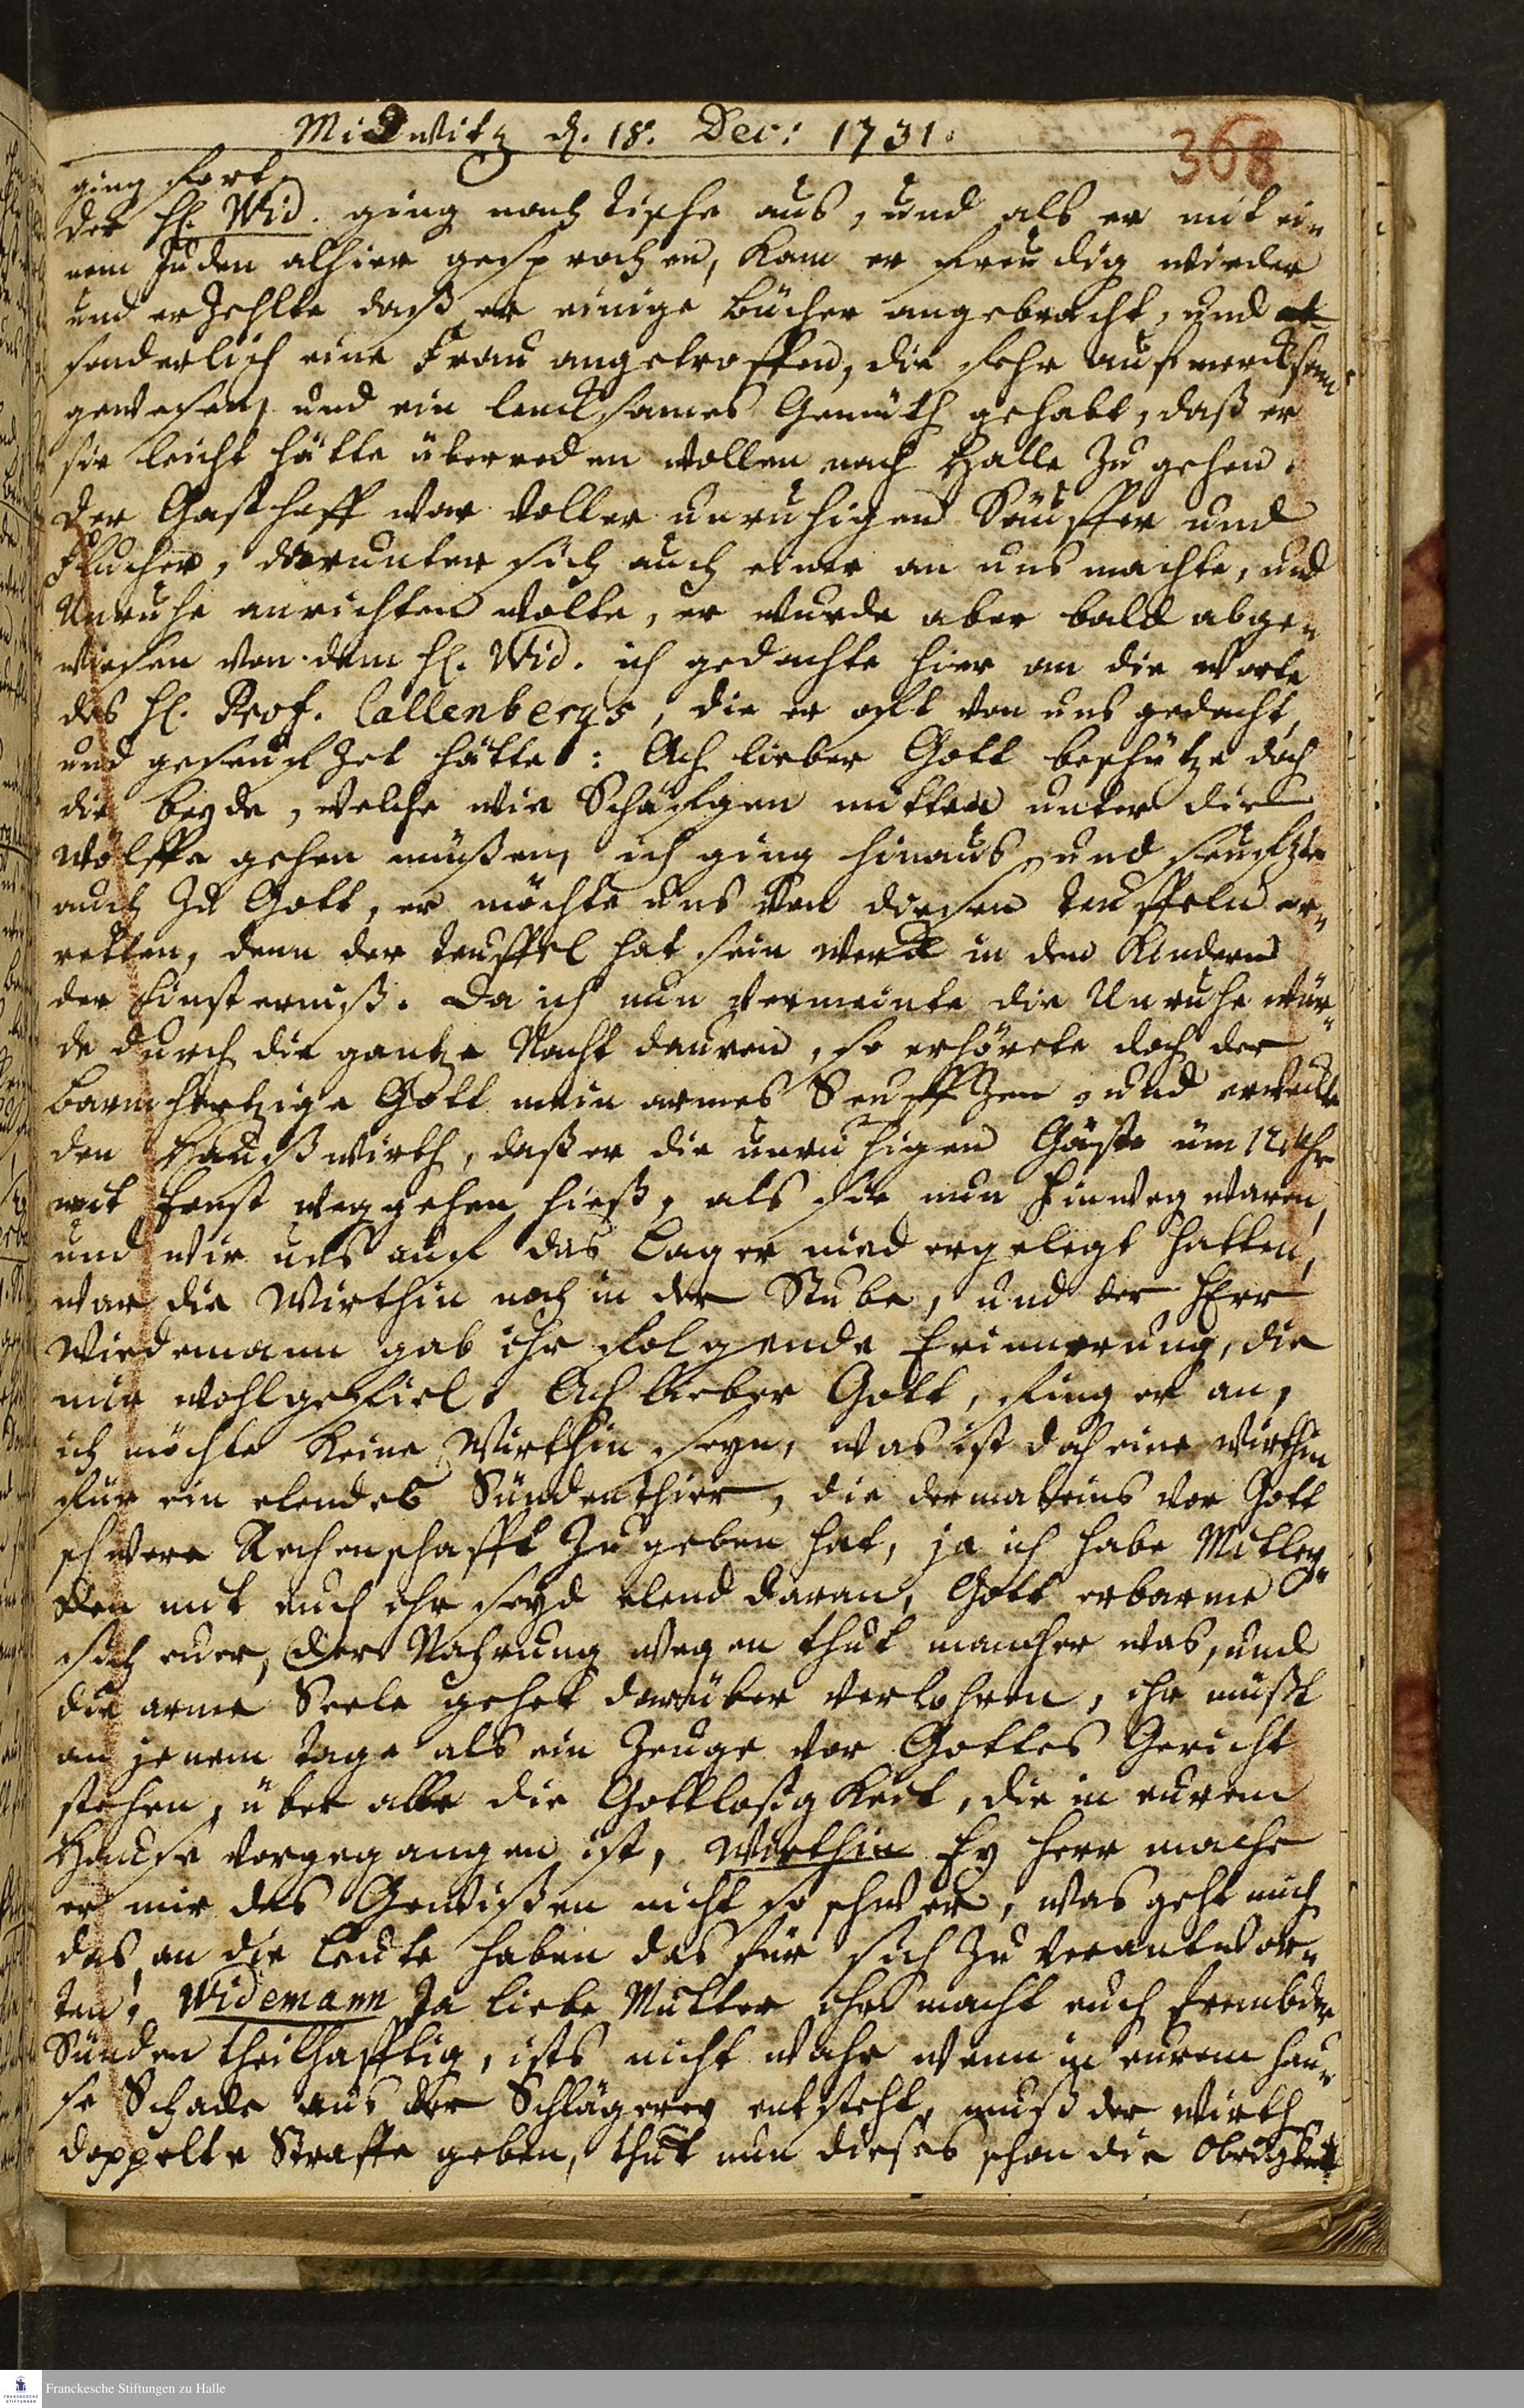 Midwitz d. 18. Dec: 1731.
368
ging fort.
der H. Wid. ging nach tische aus, und als er mit ei„
nem Juden alhier gesprochen, kam er freudig wieder
und erzehlte daß er einige Bücher angebracht, und
sonderlich eine Frau angetroffen, die sehr aufmercksam
gewesen, und ein lencksames Gemüth gehabt, daß er
sie leicht hätte überreden wollen nach Halle zu gehen.
Der Gasthoff war voller unruhigen Säuffer und
Flucher, darunter sich auch einer an uns machte, und
Unruhe anrichten wolte, er wurde aber bald abge„
wiesen von dem H. Wid. ich gedachte hier an die worte
des H. Prof. Callenbergs, die er offt von uns gedacht,
und geseufzet hätte: Ach lieber Gott beschütze doch
die beyde, welche wie Schäfgen mitten unter die
wölffe gehen müßen, ich ging hinaus, und seufzte
auch zu Gott, er möchte uns von diesen teuffeln er„
retten, denn der teuffel hat sein werck in den Kindern
der finsterniß. Da ich nun vermeinte die Unruhe wür„
de durch die gantze Nacht dauren, so erhörete doch der
barmhertzige Gott mein armes Seuffzen, und erweckte
den Haußwirth, daß er die unruhigen Gäste üm 12 Uhr
mit Ernst weggehen hieß, als sie nun hinweg waren,
und wir uns auf das Lager niedergelegt hatten,
war die Wirthin noch in der Stube, und der Herr
Wiedemann gab ihr folgende Erinnerung, die
mir wohlgefiel. Ach lieber Gott, fing er an,
ich möchte keine Wirthin seyn, was ist doch eine wirthin
für ein elendes Sündenthier, die dermaleins vor Gott
schwere Rechenschafft zu geben hat, ja ich habe Mitley„
den mit euch ihr seyd elend daran, Gott erbarme
sich euer, der Nahrung wegen thut mancher was, und
die arme Seele gehet darüber verlohren, ihr müßt
an jenem tage als ein Zeuge vor Gottes Gericht
stehen, über alle die Gottlosigkeit, die in eurem
Hause vorgegangen ist, Wirthin Ey Herr mache
er mir das Gewißen nicht so schwer, was geht mich
das an die Leute haben das für sich zu verantwor„
ten, Widemann Ja liebe Mutter ihr macht euch frembder
Sünden theilhafftig, ists nicht wahr wenn in eurem Hau„
se Schade aus der Schlägerey entsteht, muß der wirth
doppelte Straffe geben, thut nun dieses schon die Obrigkeit
Franckesche Stiftungen zu Halle